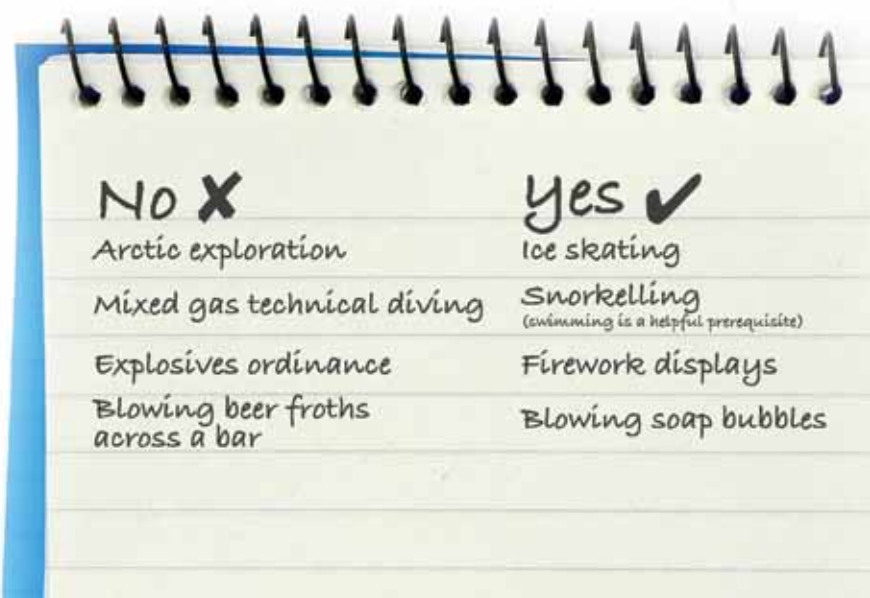 No ✘
Arctic exploration
Mixed gas technical diving
Explosives ordinance
Blowing beer froths
across a bar
Yes ✔
Ice skating
Snorkelling
(swimming is a helpful prerequisite)
Firework displays
Blowing soap bubbles